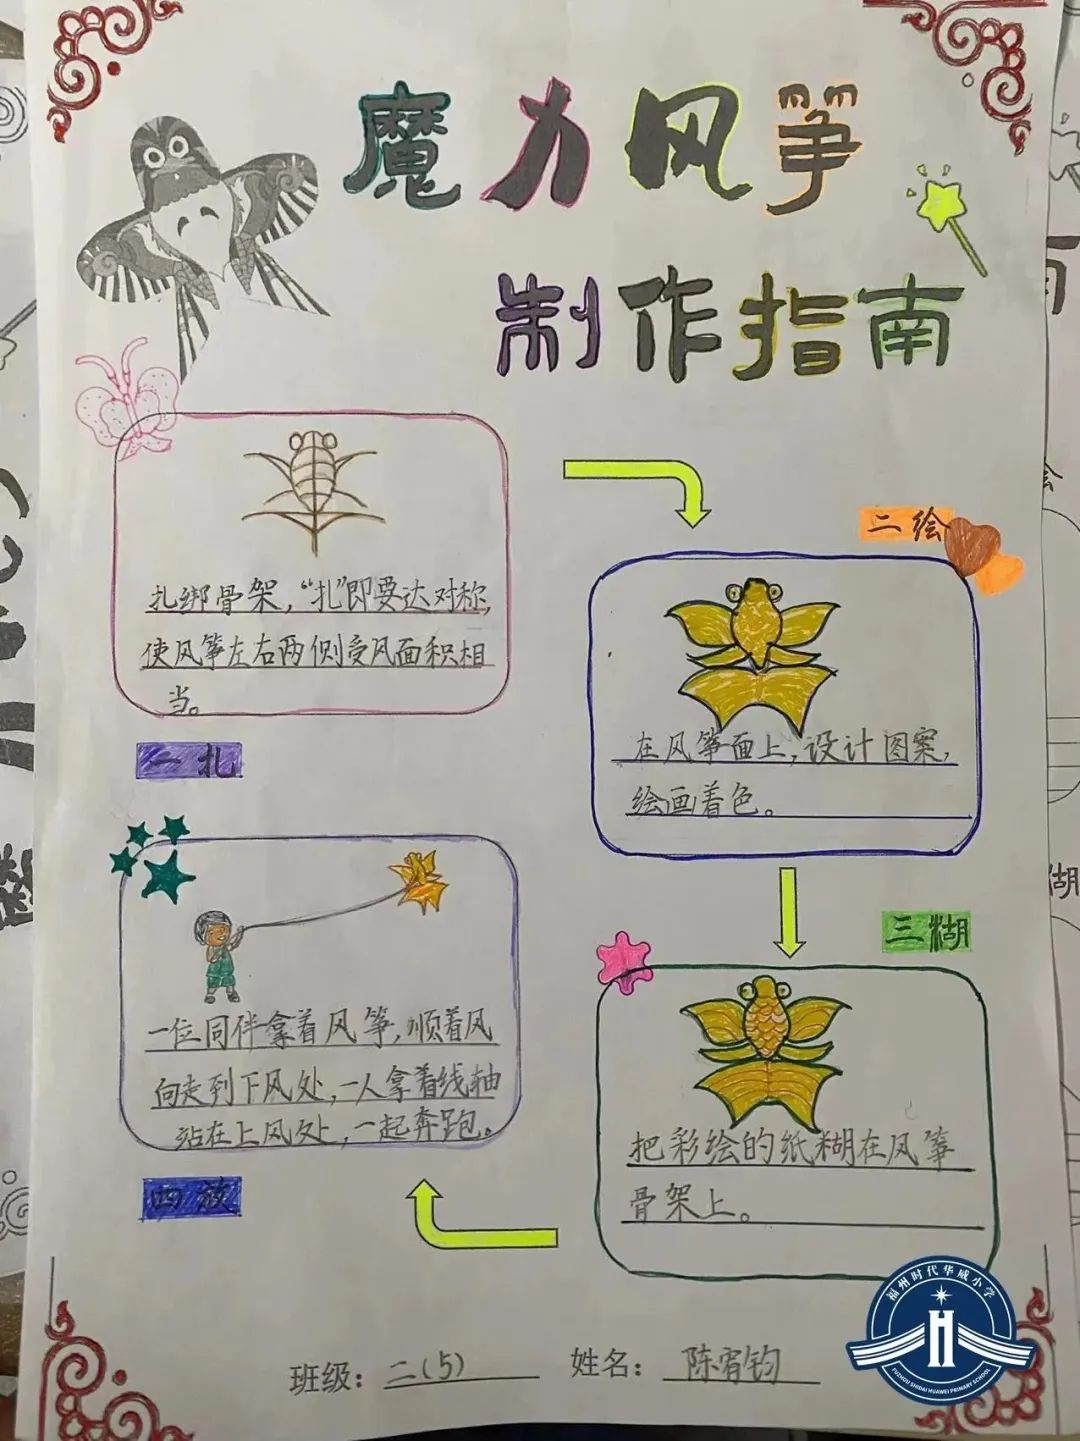 魔力风筝
制作指南
扎绑骨架，“扎”即要达对称，
使风筝左右两侧受风面积相
当。
一扎
二绘
在风筝面上，设计图案，
绘画着色。
三糊
把彩绘的纸糊在风筝
骨架上。
一位同伴拿着风筝，顺着风
向走到下风处，一人拿着线轴
站在上风处，一起奔跑。
四放
班级：二（5） 姓名：陈宥钧
福州时代华威小学
FUZHOU SHIDAI HUAWEI PRIMARY SCHOOL